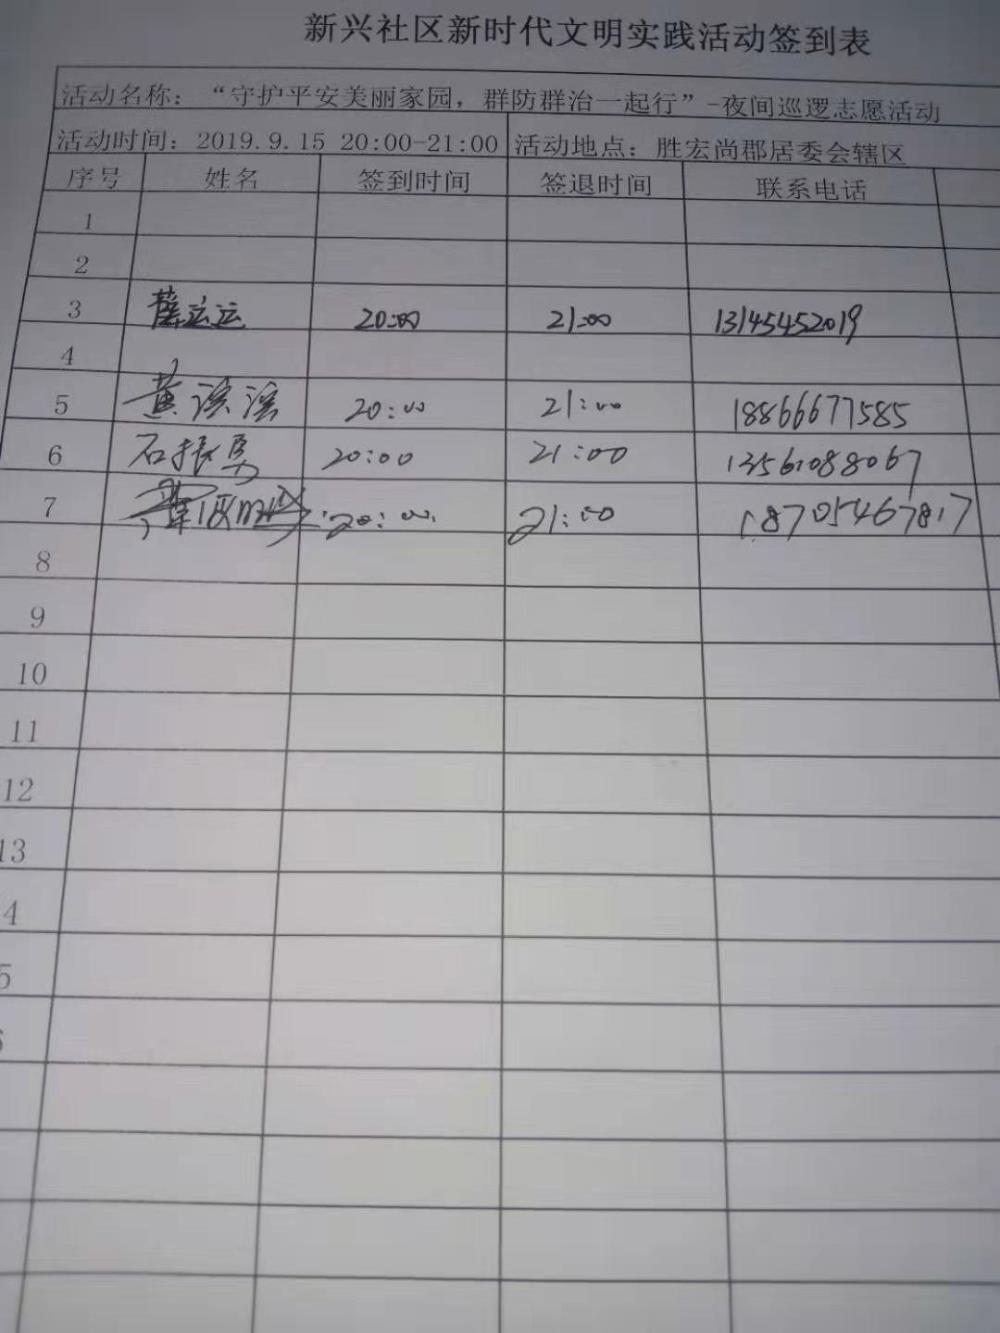 新兴社区新时代文明实践活动签到表
活动名称：“守护平安美丽家园，群防群治一起行”-夜间巡逻志愿活动
活动时间：2019.9.15 20:00-21:00 活动地点：胜宏尚郡居委会辖区
序号 姓名 签到时间 签退时间 联系电话
1
2
3 20:00 21:00 13145452019
4
5 黄滨滨 20:00 21:00 18866677585
6 石振勇 20:00 21:00 13561088067
7 20:00 21:00 18705467817
8
9
10
11
12
13
4
5